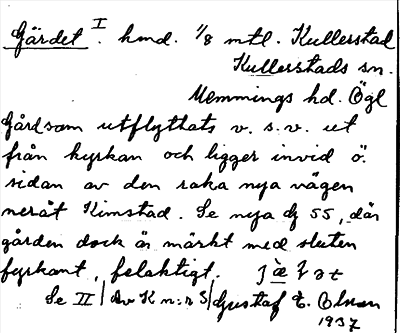 Gärdet I. hmd. 1/8 mtl. Kullerstad
Kullerstads sn.
Memmings hd. Ögl
Gård som utflyttats v. s. v. ut
från kyrkan och ligger invid ö.
sidan av den raka nya vägen
neråt Kimstad. Se nya 55, där
gården dock är märkt med sluten
fyrkant, felaktigt.
Se II / Av K n:r 3 / Gustaf E. Olsson
1937